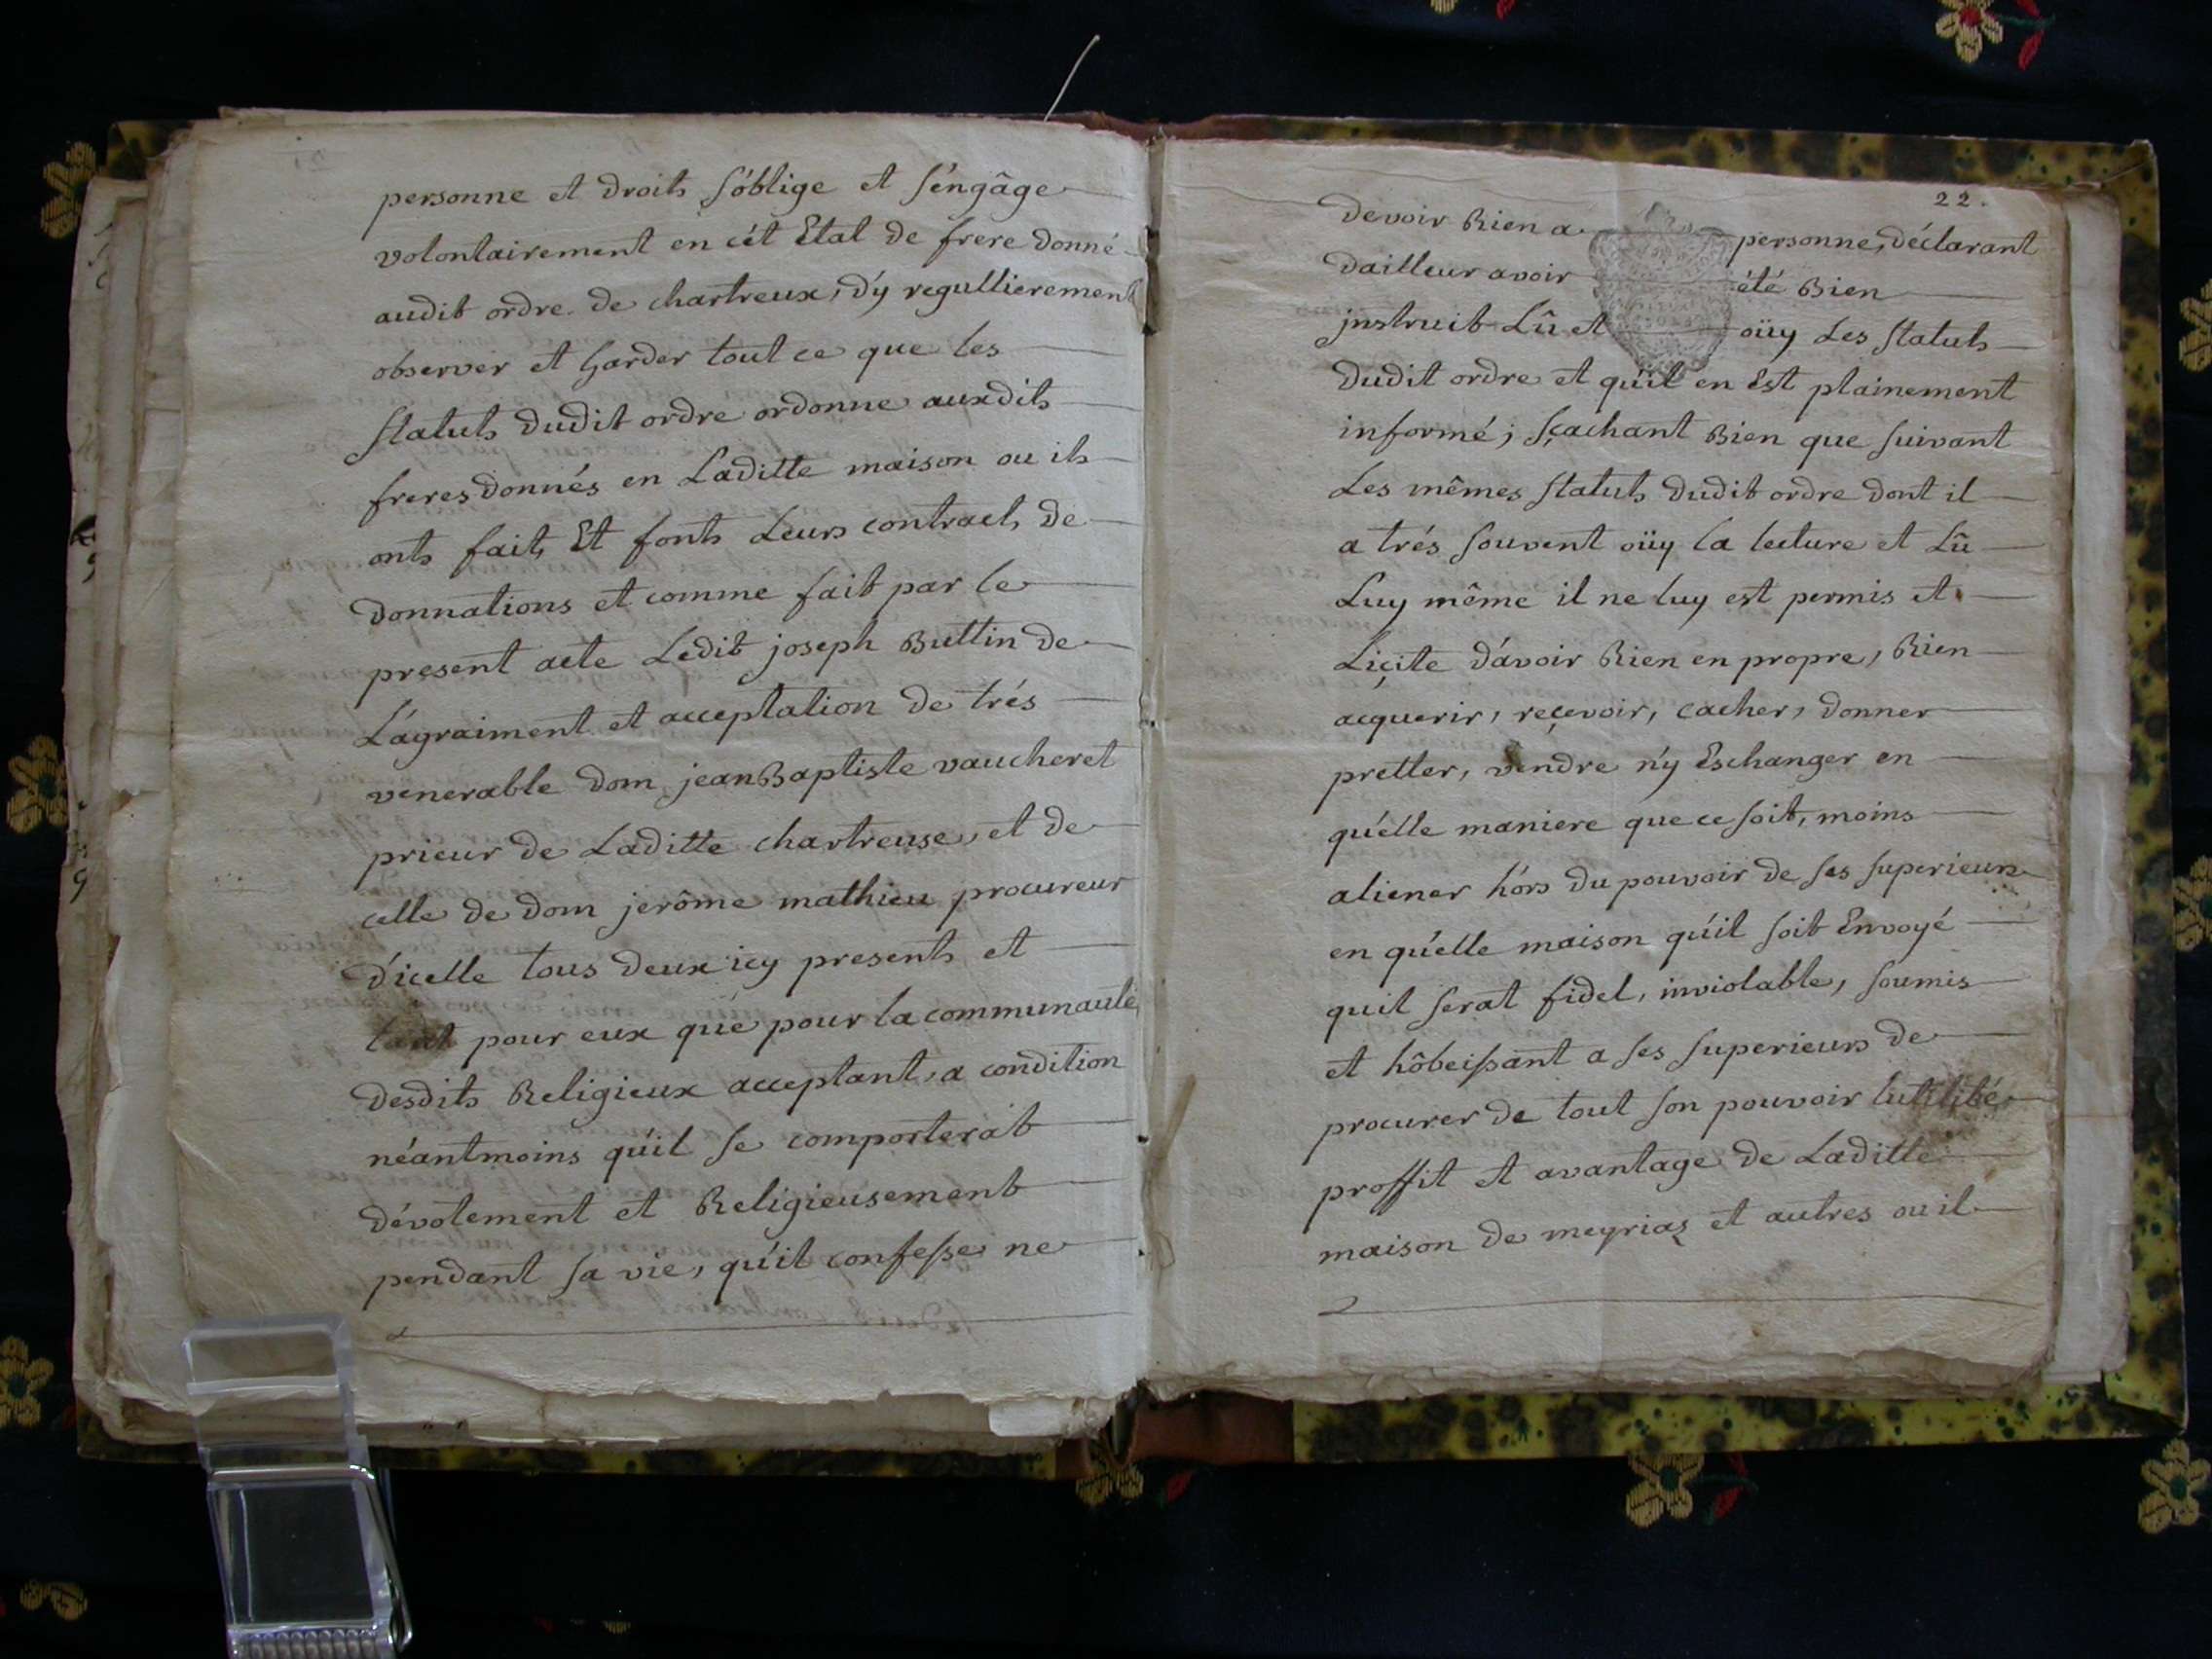 personne et droits s'óblige et s'éngâge
volontairement en cét Etat de frere donné
audit ordre de chartreux, d'y regullierement
observer et garder tout ce que les
statuts dudit ordre ordonne auxdits
freres donnés en Laditte maison ou ils
onts faits Et fonts Leurs contracts de
donnations et comme fait par le
present acte Ledit joseph Buttin de
L'ágraiment et acceptation de trés
venerable dom jean Baptiste vaucheret
prieur de Laditte chartreuse, et de
celle de dom jerôme mathieu procureur
d'icelle tous deux icy presents et
tant pour eux que pour la communauté
desdits Religieux acceptant, a condition
néantmoins qu'il se comporterat
dévotement et Religieusement
pendant sa vie, qu'il confesse ne
22.
devoir Rien a personne, déclarant
dailleur avoir été Bien
jnstruit Lû et oüy Les statuts
dudit ordre et qu'il en Est plainement
informé; sçachant Bien que suivant
Les mêmes statuts dudit ordre dont il
a trés souvent oüy la lecture et Lû
Luy même il ne luy est permis et
Liçite d'avoir Rien en propre, Rien
acquerir, reçevoir, cacher, donner
pretter, vendre n'y Eschanger en
qu'elle maniere que ce soit, moins
aliener h'ors du pouvoir de ses superieurs
en qu'elle maison qu'il soit Envoyé
quil serat fidel, inviolable, soumis
et hôbeissant a ses superieurs de
procurer de tout son pouvoir lutilité
proffit et avantage de Laditte
maison de meyriaz et autres ou il